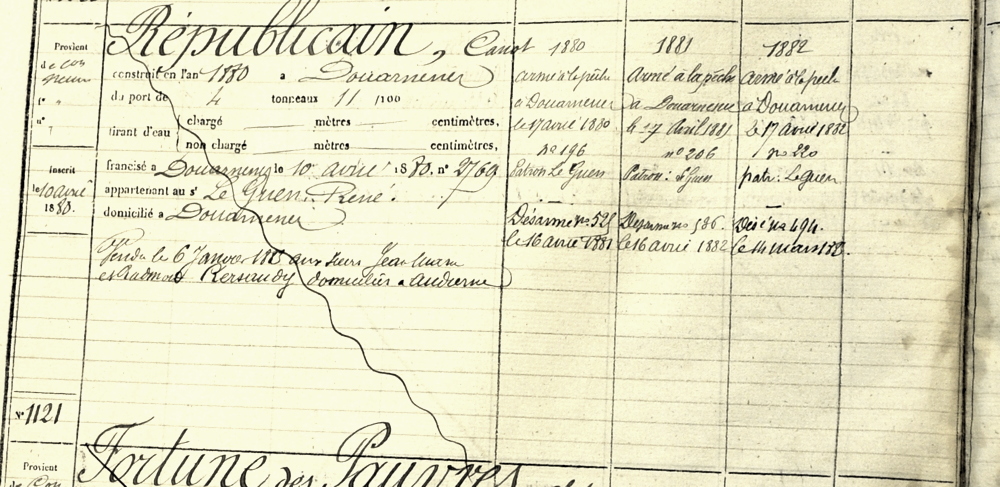 Républicain, Canot
Provient
de Cons
truction
f° "
n° "
construit en l'an 1880 a Douarnenez
du port de 4 tonneaux 11 /100
tirant d'eau
chargé mètres centimètres,
non chargé mètres centimètres,
inscrit
le 10 avril
1880.
francisé a Douarnenez le 10 avril 1880. n° 2769
appartenant au sr Le Guen René.
domicilié a Douarnenez
Vendu le 6 Janvier aux sieurs Jean Marie
et Kersaudy domiciliés a Audierne
1880
armé à la pêche
à Douarnenez
le 17 avril 1880
n° 196
Patron Le Guen
Désarmé n° 525
le 16 avril 1881
1881
Armé à la pêche
à Douarnenez
le 17 Avril 1881
n° 206
Patron: Le Guen
Désarmé n° 586
le 16 avril 1882
1882
armé à la pêche
à Douarnenez
le 17 Avril 1882
n° 220
patr: Le Guen
Dés. n° 494
le 14 mars
N° 1121
Provient
de Con
Fortune des Pauvres